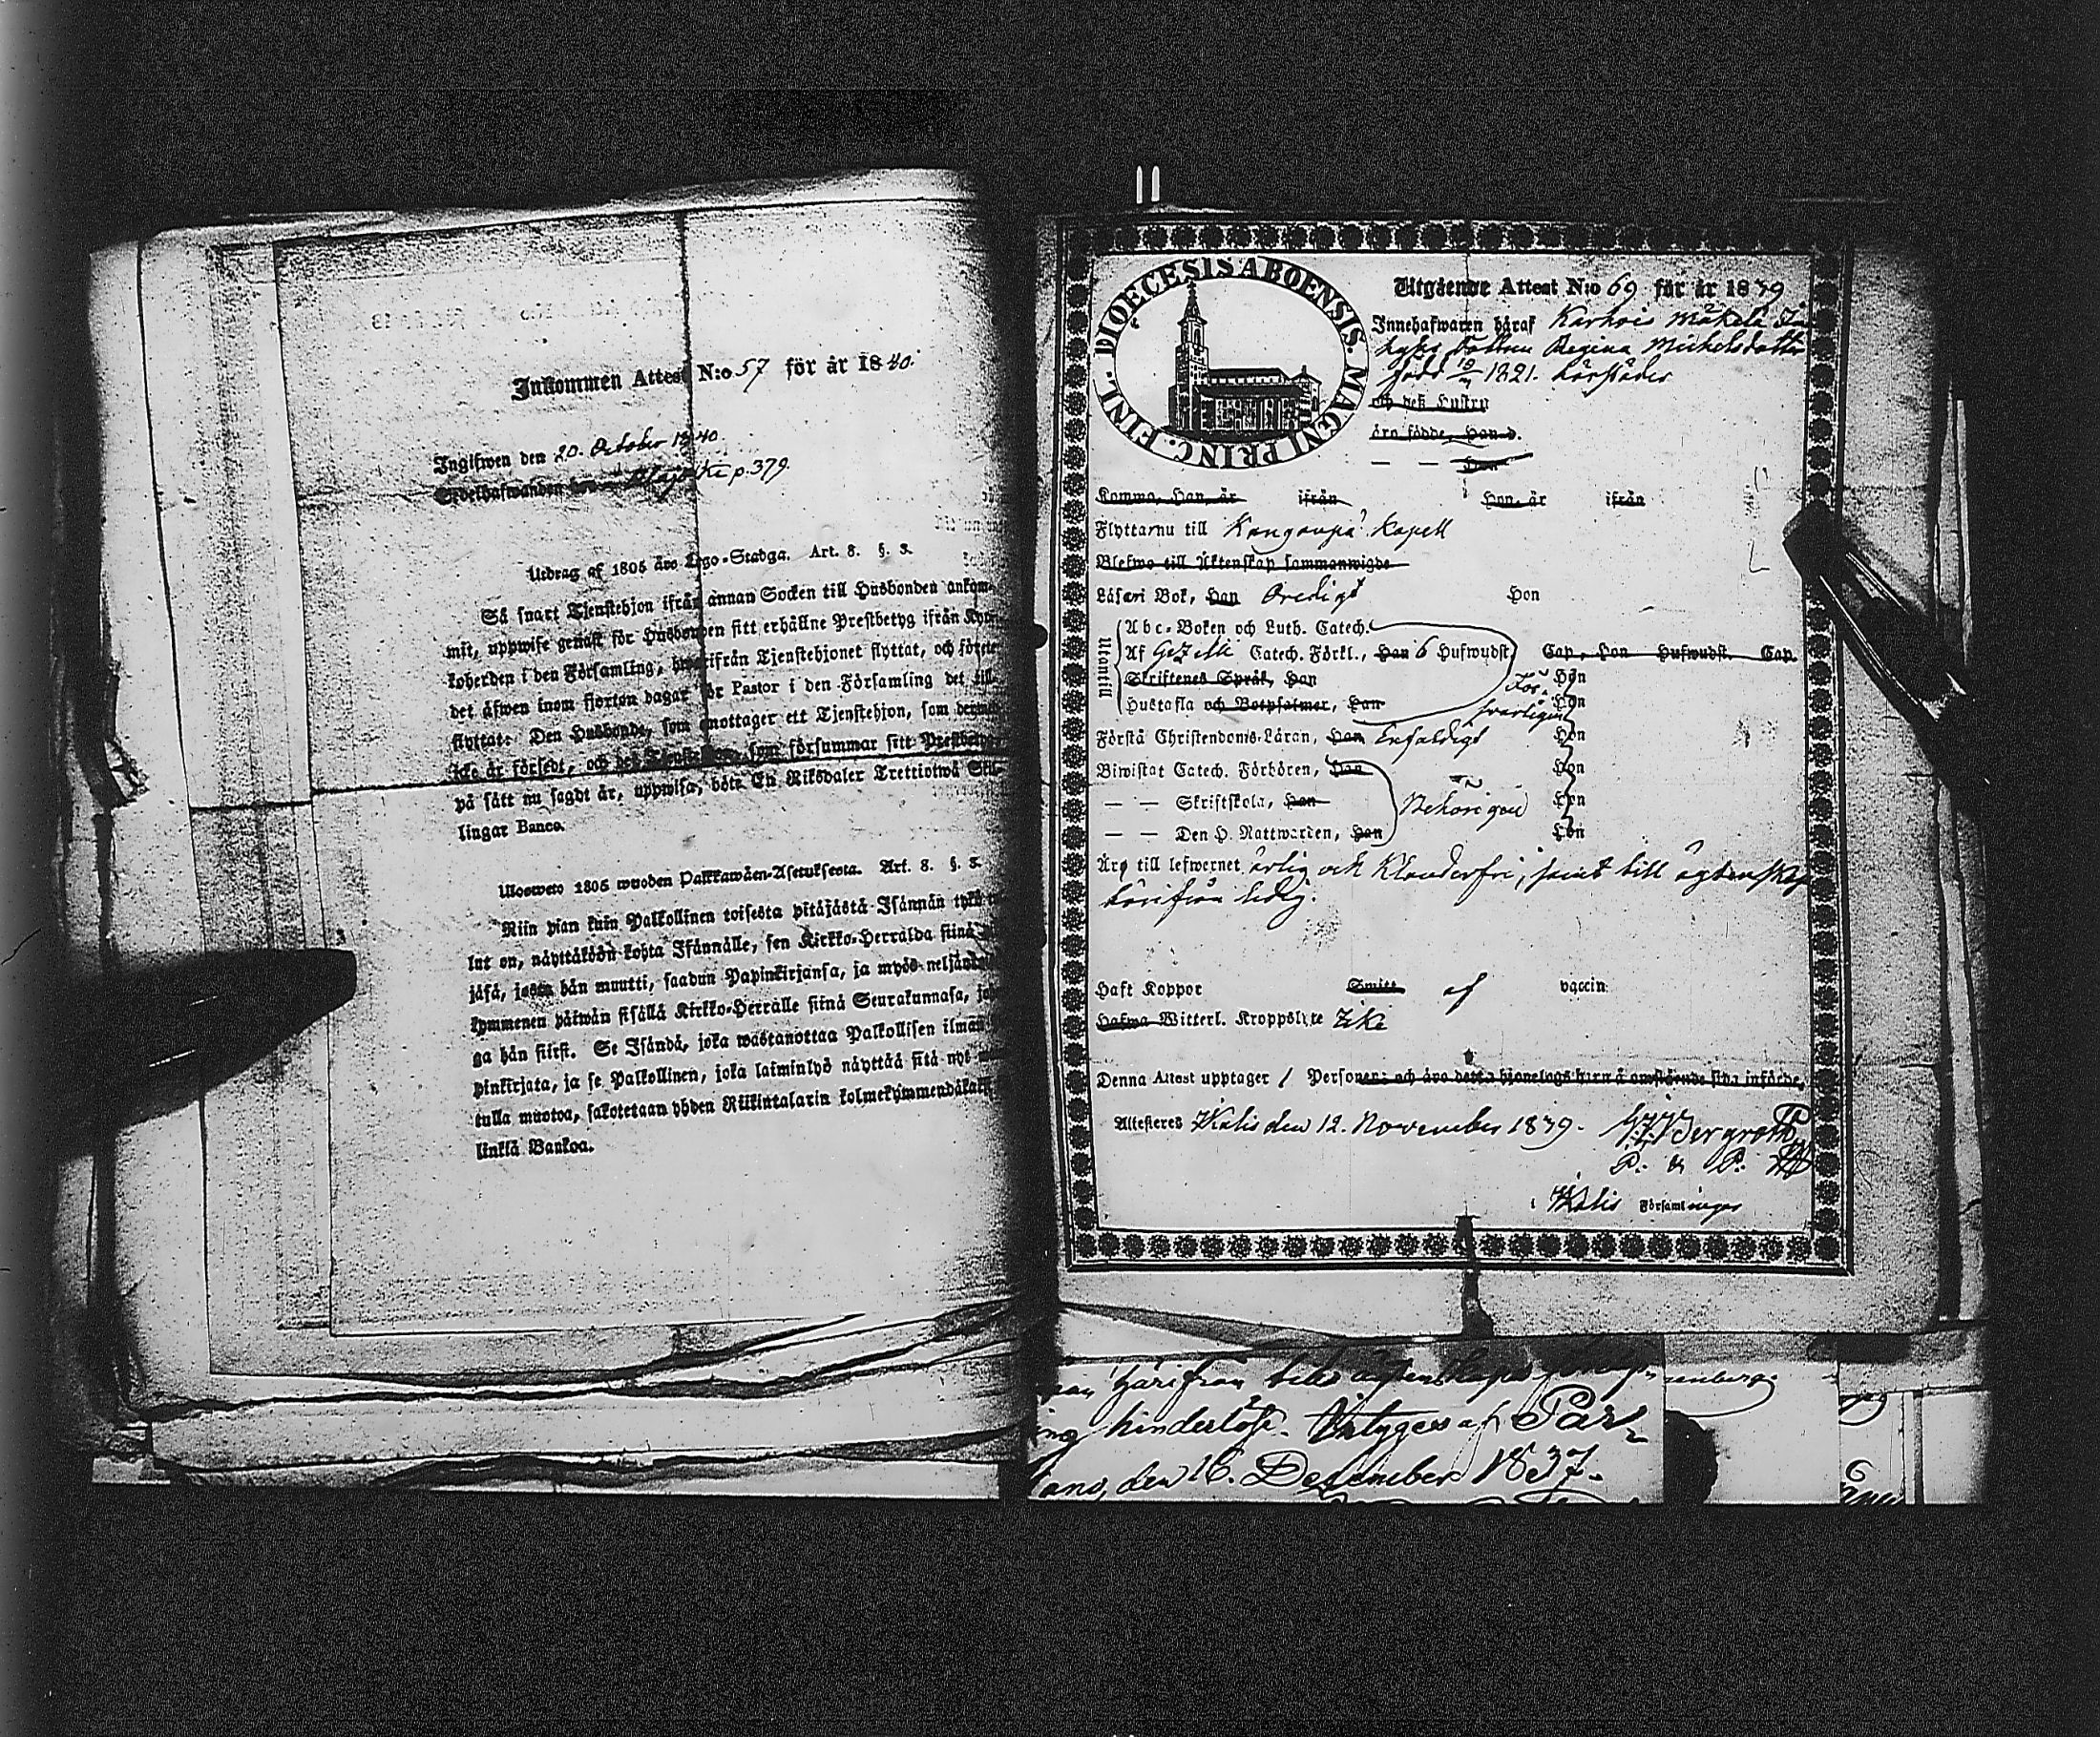 Inkommen Attest N:o 57 för år 1840.
Ingifwen den 20. October 1840.
p. 379.
Utdrag af 1805 års Lego-Stadga. Art. 8. §. 3.
Så snart Tjenstehjon ifrån annan Socken till Husbonden ankom-
mit, uppwise genast för Husbonden sitt erhållne Prestbetyg ifrån Kyrk-
koherden i den Församling, hwarifrån Tjenstehjonet flyttat, och förete
det äfwen inom fjorton dagar för Pastor i den Församling det till-
flyttat. Den Husbonde, som emottager ett Tjenstehjon, som dermed
icke är försedt, och det Tjenstehjon, som försummar sitt Prestbetyg
på sätt nu sagdt är, uppwisa, böte En Riksdaler Trettiotwå Skil-
lingar Banco.
Uloswetö 1805 wuoden Palkkawäen-Asetuksesta. Art. 8. §. 3.
Niin pian kuin Palkollinen toisesta pitäjästä Isännän tykö
lut on, näyttäköön kohta Isännälle, sen Kirkko-Herralda siinä
jäsä, josta hän muutti, saadun Papinkirjansa, ja myös neljän
kymmenen päiwän sisällä Kirkko-Herralle siinä Seurakunnasa,
ga hän siirst. Se Isändä, joka wastanottaa Palkollisen ilman
pinkirjata, ja se Palkollinen, joka laiminlyö näyttää sitä nyt
tulla muotoa, sakotetaan yhden Riikintalarin kolmekymmendäkaksi
linkiä Bankoa.
DIOECESIS ABOENSIS. MAGNI PRINC. FINL.
Utgående Attest N:o 69 för år 1839
Innehafwaren häraf Karhois Mäkelä
Dottern Regina Michelsdotter
född 10/11 1821. härstädes
och deß Hustru
äro födde, Han d.
— — Hon
Komma, Han, år ifrån Hon, år ifrån
Flyttarnu till Kangonpä Kapell
Blefwo till Äktenskap sammanwigde
Läser i Bok, Han Oredigt Hon
Utantill
Abc-Boken och Luth. Catech.
Af Gezelli Catech. Förkl., Han 6 Hufwudst. Cap., Hon Hufwudst. Cap.
Skriftenes Språk, Han Hon
Hustafla och Botpsalmer, Han Hon
Förstå Christendoms-Läran, Han Enfaldigt Hon
Biwistat Catech. Förhören, Han Hon
— — Skriftskola, Han Behörigen Hon
— — Den H. Nattwarden, Han Hon
Äro till lefwernet ärlig och Klanderfri, samt till ägtenskap
härifrån ledig.
Haft Koppor Smitt af vaccin
Hafwa Witterl. Kroppslyte Icke
Denna Attest upptager 1 Personer: och äro detta hjonelags barn å omstående sida införde.
Attesteres Ikalis den 12. November 1839. Bergroth
P. & P.
i Ikalis Församlingar
härifrån till ägtenskaps
hinderlöse. Betyges af Par-
kano, den 16. December 1837.